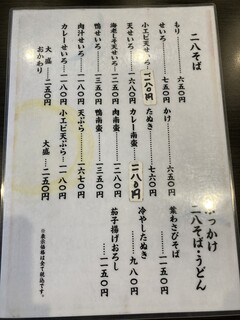 二八そば
もり……六五〇円
せいろ……七六〇円
小エビ天せいろ…一一八〇円
天せいろ……一六八〇円
海老と半天せいろ…一三五〇円
鴨せいろ……一三五〇円
肉汁せいろ……一一八〇円
カレーせいろ…一一八〇円
おかわり
大盛……二五〇円
ぶっかけ
二八そば・うどん
かけ……六五〇円
たぬき……七六〇円
カレー南蛮……一一八〇円
肉南蛮……一二八〇円
鴨南蛮……一三五〇円
天ぷら……一六七〇円
小エビ天ぷら…一一八〇円
大盛……二五〇円
葉わさびそば……一一五〇円
冷やしたぬき……九八〇円
茄子揚げおろし……一一五〇円
※表示価格は全て税込です。